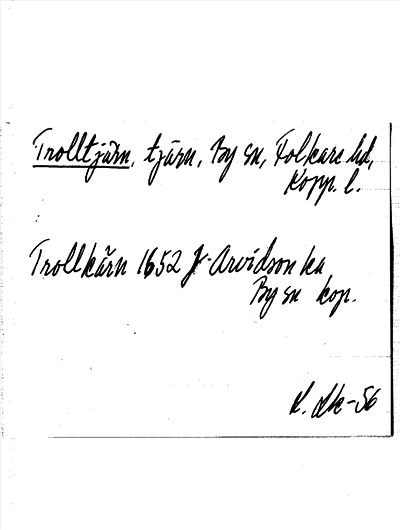 Trolltjärn, tjärn, By sn, Folkare hd,
Kopp. l.
Trollkärn 1652 J. Arvidson ka
By sn kop.
K. Lk-56